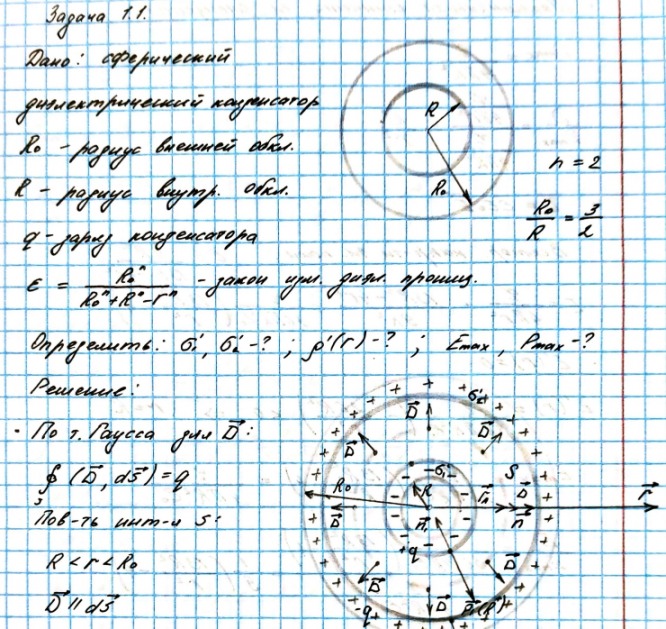 Задача 1.1.
Дано: сферический
диэлектрический конденсатор
R₀ - радиус внешней обкл.
R - радиус внутр. обкл.
q - заряд конденсатора
ε = R₀ⁿ / (R₀ⁿ + Rⁿ - rⁿ) - закон изм. диэл. прониц.
R
R₀
n = 2
R₀/R = 3/2
Определить: σ₁', σ₂' - ? ; ρ'(r) - ? ; Emax, Pmax - ?
Решение:
· По т. Гаусса для D⃗:
∮ (D⃗, dS⃗) = q
S
Пов-ть инт-я S:
R < r < R₀
D⃗ ∥ dS⃗
σ₂'
D⃗
D⃗
D⃗
S
-σ₁'
R₀
R
D⃗
r⃗
D⃗
n⃗
+q
D⃗
D⃗
D⃗
-q